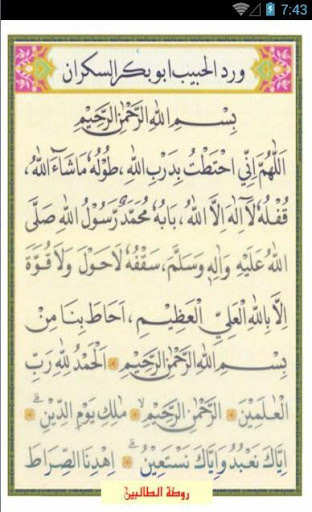 7:43
ورد الحبيب ابوبكر السكران
بِسْمِ اللهِ الرَّحْمٰنِ الرَّحِيْمِ
اَللّٰهُمَّ اِنِّي احْتَطْتُ بِدَرْبِ اللهِ، طُوْلُهُ مَاشَآءَ اللهُ،
قُفْلُهُ لَآ اِلٰهَ اِلَّا اللهُ، بَابُهُ مُحَمَّدٌ رَسُوْلُ اللهِ صَلَّى
اللهُ عَلَيْهِ وَاٰلِهِ وَسَلَّمَ، سَقْفُهُ لَاحَوْلَ وَلَا قُوَّةَ
اِلَّا بِاللهِ الْعَلِيِّ الْعَظِيْمِ، اَحَاطَ بِنَا مِنْ
بِسْمِ اللهِ الرَّحْمٰنِ الرَّحِيْمِ اَلْحَمْدُ لِلّٰهِ رَبِّ
الْعٰلَمِيْنَ الرَّحْمٰنِ الرَّحِيْمِ مٰلِكِ يَوْمِ الدِّيْنِ
اِيَّاكَ نَعْبُدُ وَاِيَّاكَ نَسْتَعِيْنُ اِهْدِنَا الصِّرَاطَ
روضة الطالبين